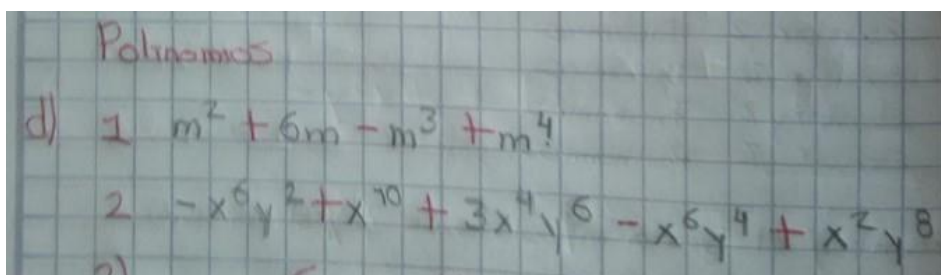 Polinomios
d) 1 m² + 6m - m³ + m⁴.
2 -x⁶y² + x¹⁰ + 3x⁴y⁶ - x⁶y⁴ + x²y⁸